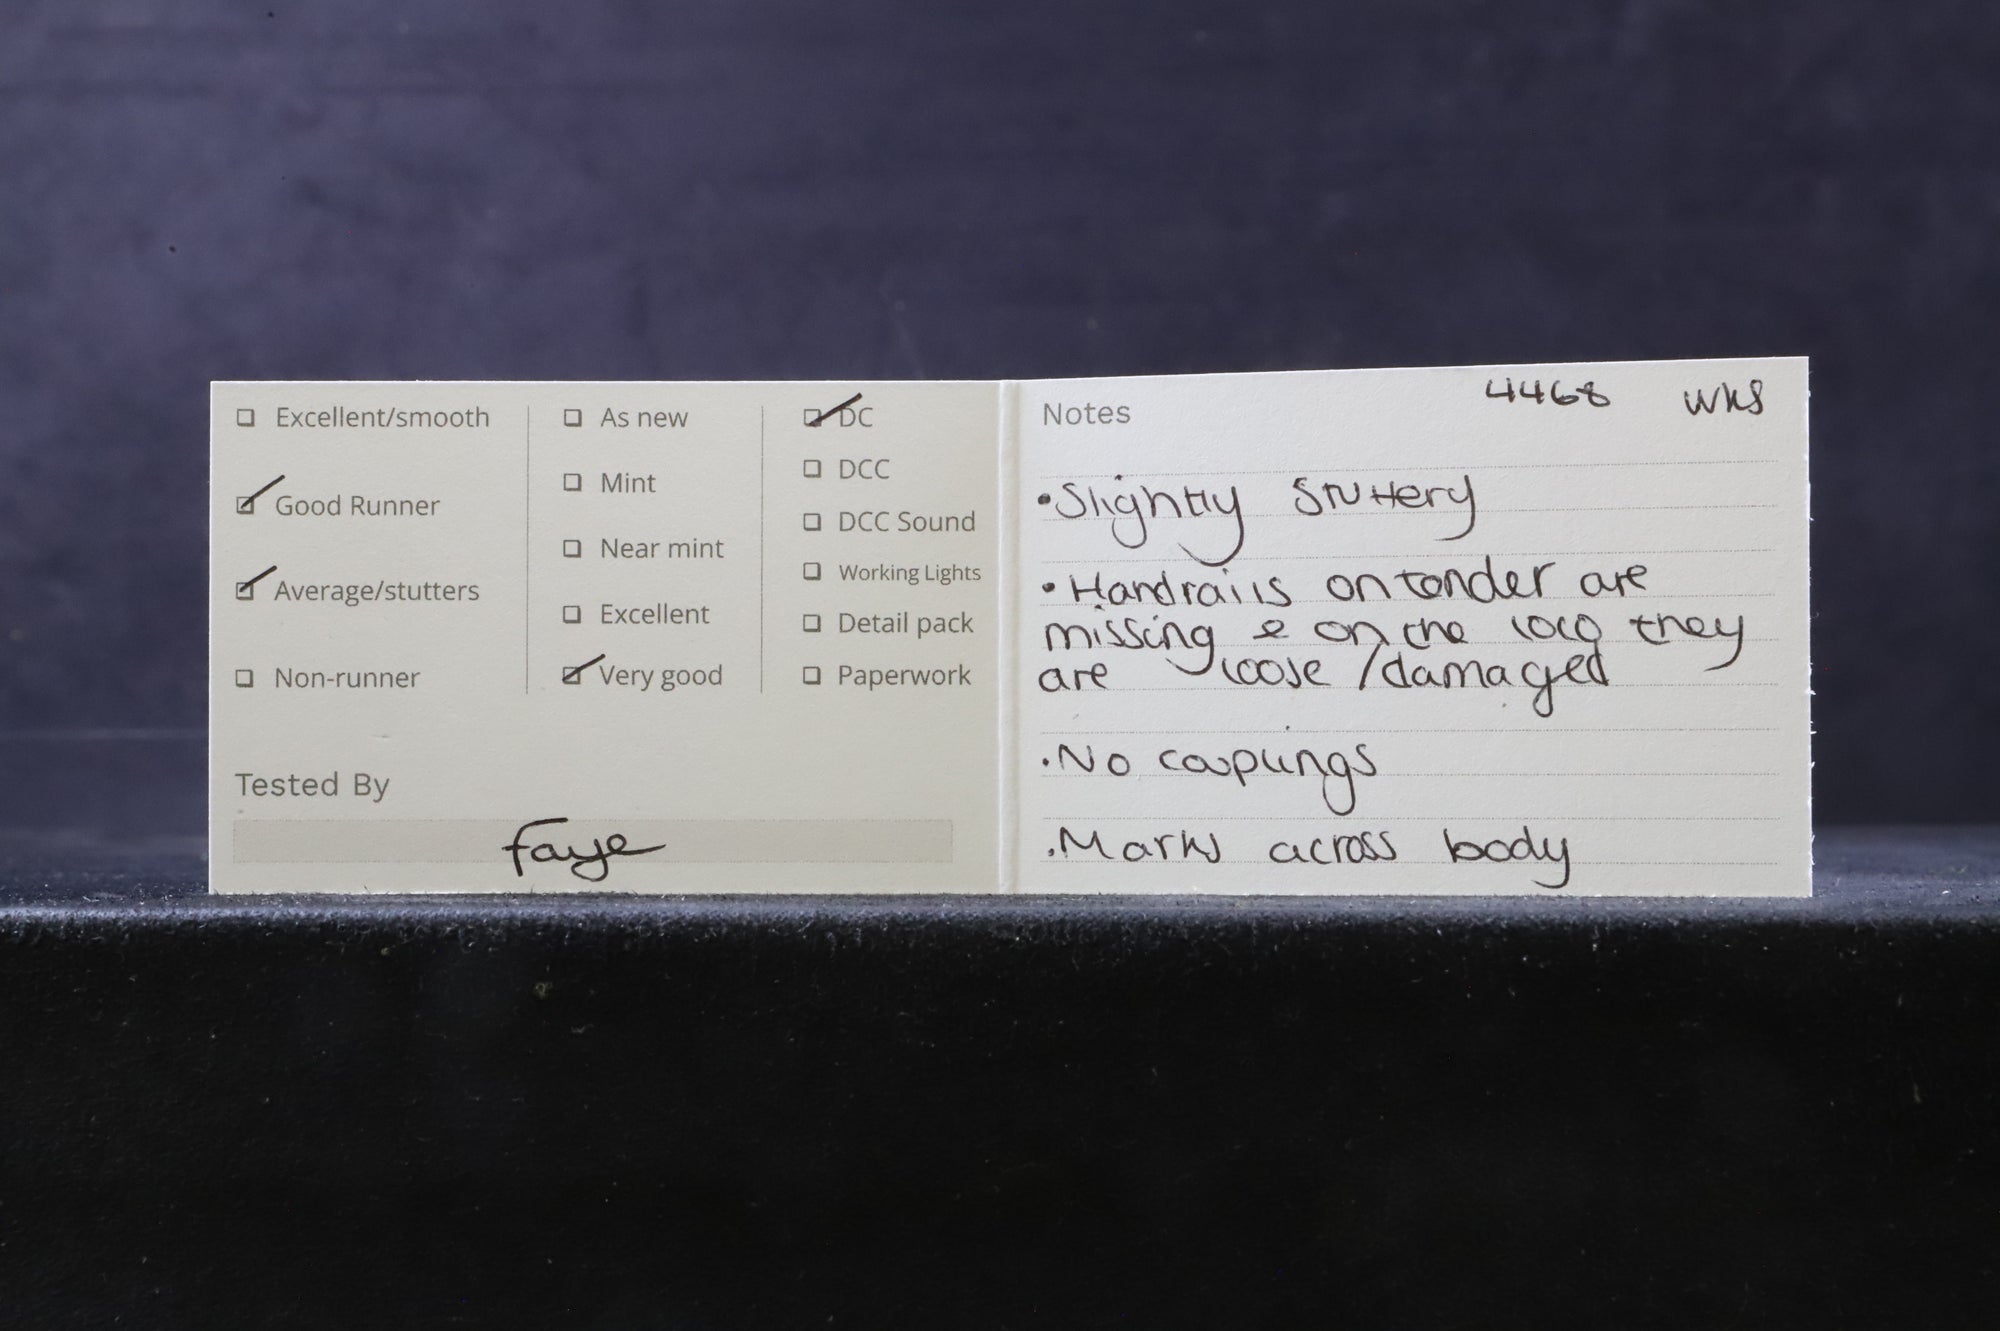 ☐ Excellent/smooth
☑ Good Runner
☑ Average/stutters
☐ Non-runner
☐ As new
☐ Mint
☐ Near mint
☐ Excellent
☑ Very good
☑ DC
☐ DCC
☐ DCC Sound
☐ Working Lights
☐ Detail pack
☐ Paperwork
Tested By
Faye
Notes 4468 WKS
• Slightly stuttery
• Handrails on tender are
missing & on the loco they
are loose / damaged
• No couplings
• Marks across body